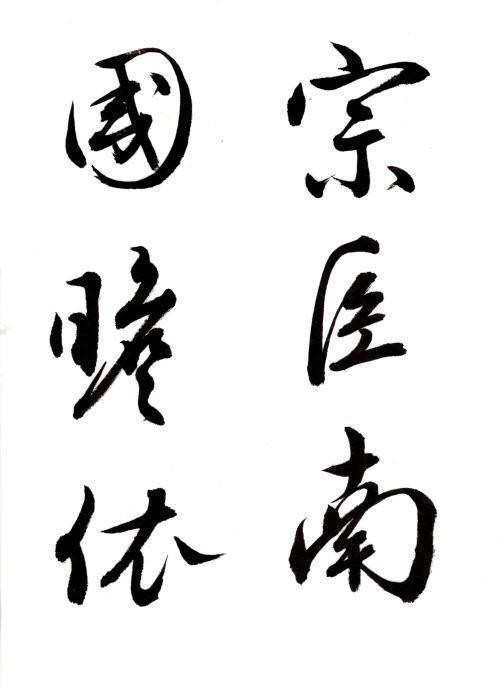 宗臣南
國瞻依